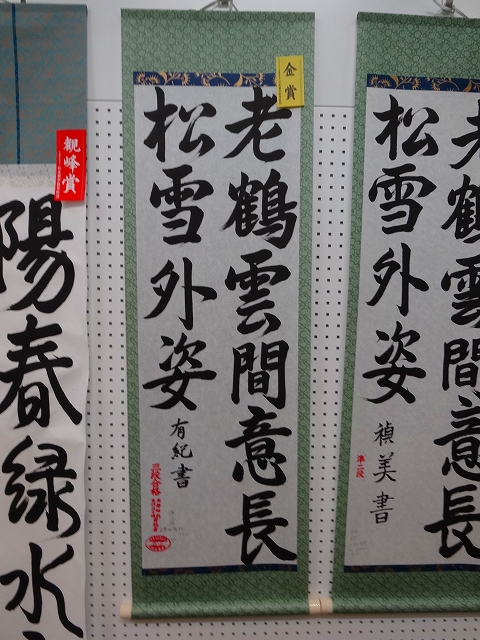 老鶴雲間意長
松雪外姿
有紀書
三段合格
金賞
老鶴雲間意長
松雪外姿
禎美書
準二段
觀峰賞
陽春緑水